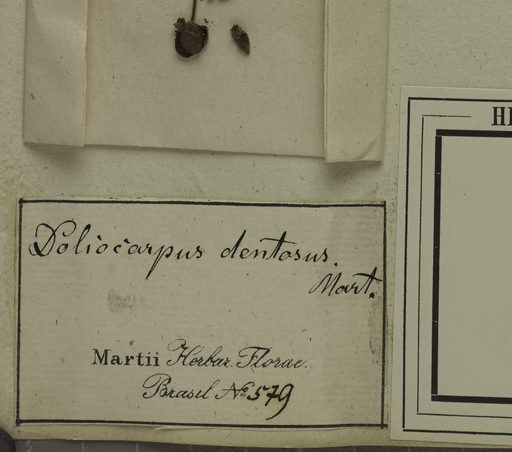 Doliocarpus dentosus.
Mart.
Martii Herbar. Florae.
Brasil No 579